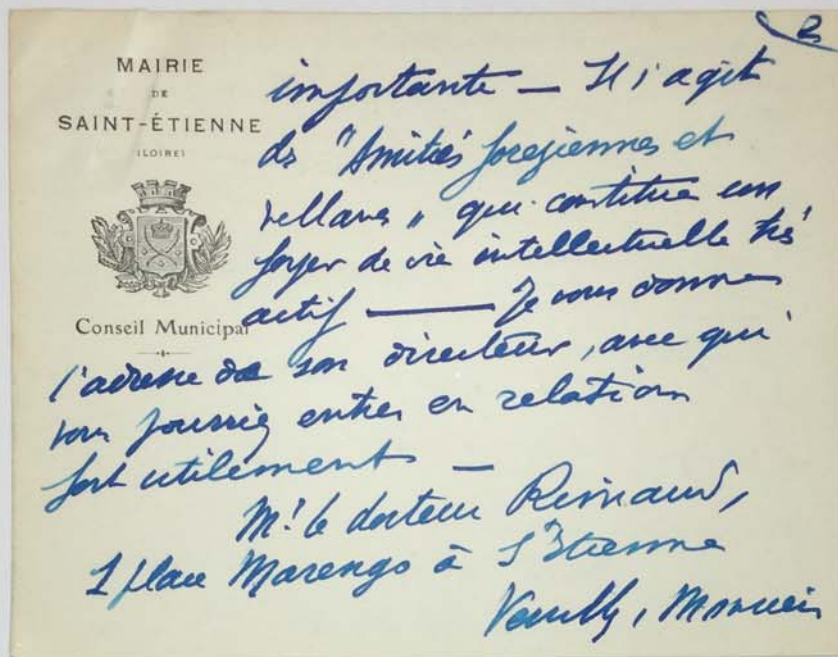 2
MAIRIE
DE
SAINT-ÉTIENNE
(LOIRE)
Conseil Municipal
importante — Il s'agit
des "Amitiés foreziennes et
vellaves" qui constitue un
foyer de vie intellectuelle très
actif — Je vous donne
l'adresse de son directeur, avec qui
vous pourriez entrer en relations
fort utilement —
Mr le docteur Rimaud,
1 place Marengo à St Etienne
Veuillez, Monsieur